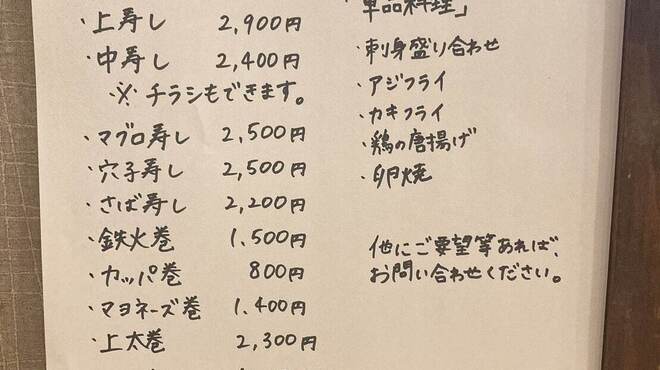 ・上寿し 2,900円
・中寿し 2,400円
・※チラシもできます。
・マグロ寿し 2,500円
・穴子寿し 2,500円
・さば寿し 2,200円
・鉄火巻 1,500円
・カッパ巻 800円
・マヨネーズ巻 1,400円
・上太巻 2,300円
「単品料理」
・刺身盛り合わせ
・アジフライ
・カキフライ
・鶏の唐揚げ
・卵焼
他にご要望等あれば、
お問い合わせください。